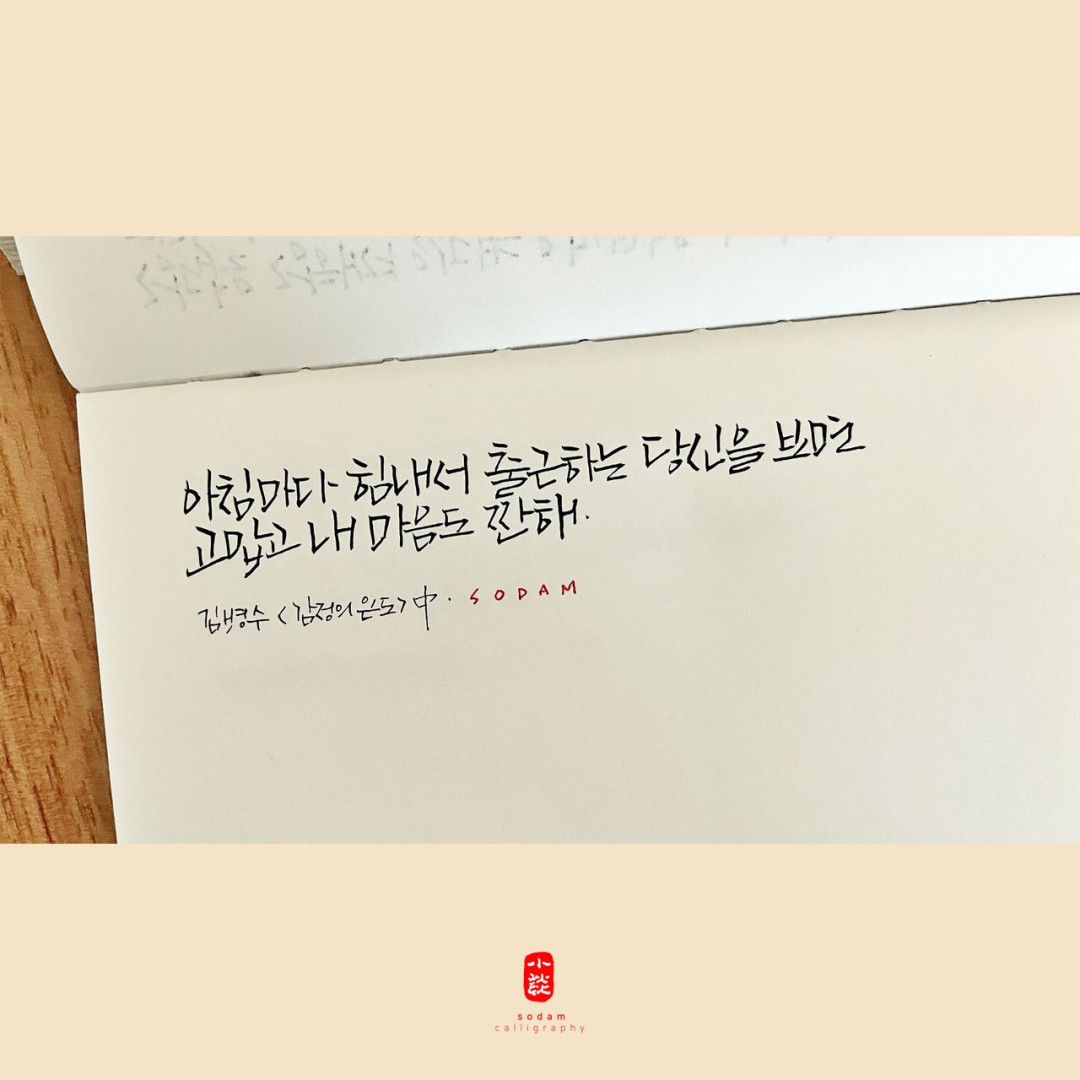 아침마다 힘내서 출근하는 당신을 보면
고맙고 내 마음도 짠해.
김병수 <감정의 온도> 中. SODAM
小談
sodam
calligraphy